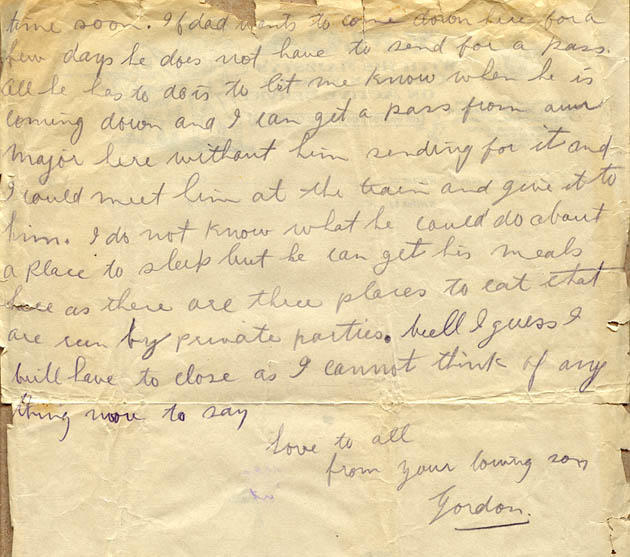 time soon. If dad wants to come down here for a
few days he does not have to send for a pass.
all he has to do is to let me know when he is
coming down and I can get a pass from our
Major here without him sending for it and
I could meet him at the train and give it to
him. I do not know what he could do about
a place to sleep but he can get his meals
here as there are three places to eat that
are run by private parties. Well I guess I
will have to close as I cannot think of any
thing more to say
Love to all
from your loving son
Gordon.